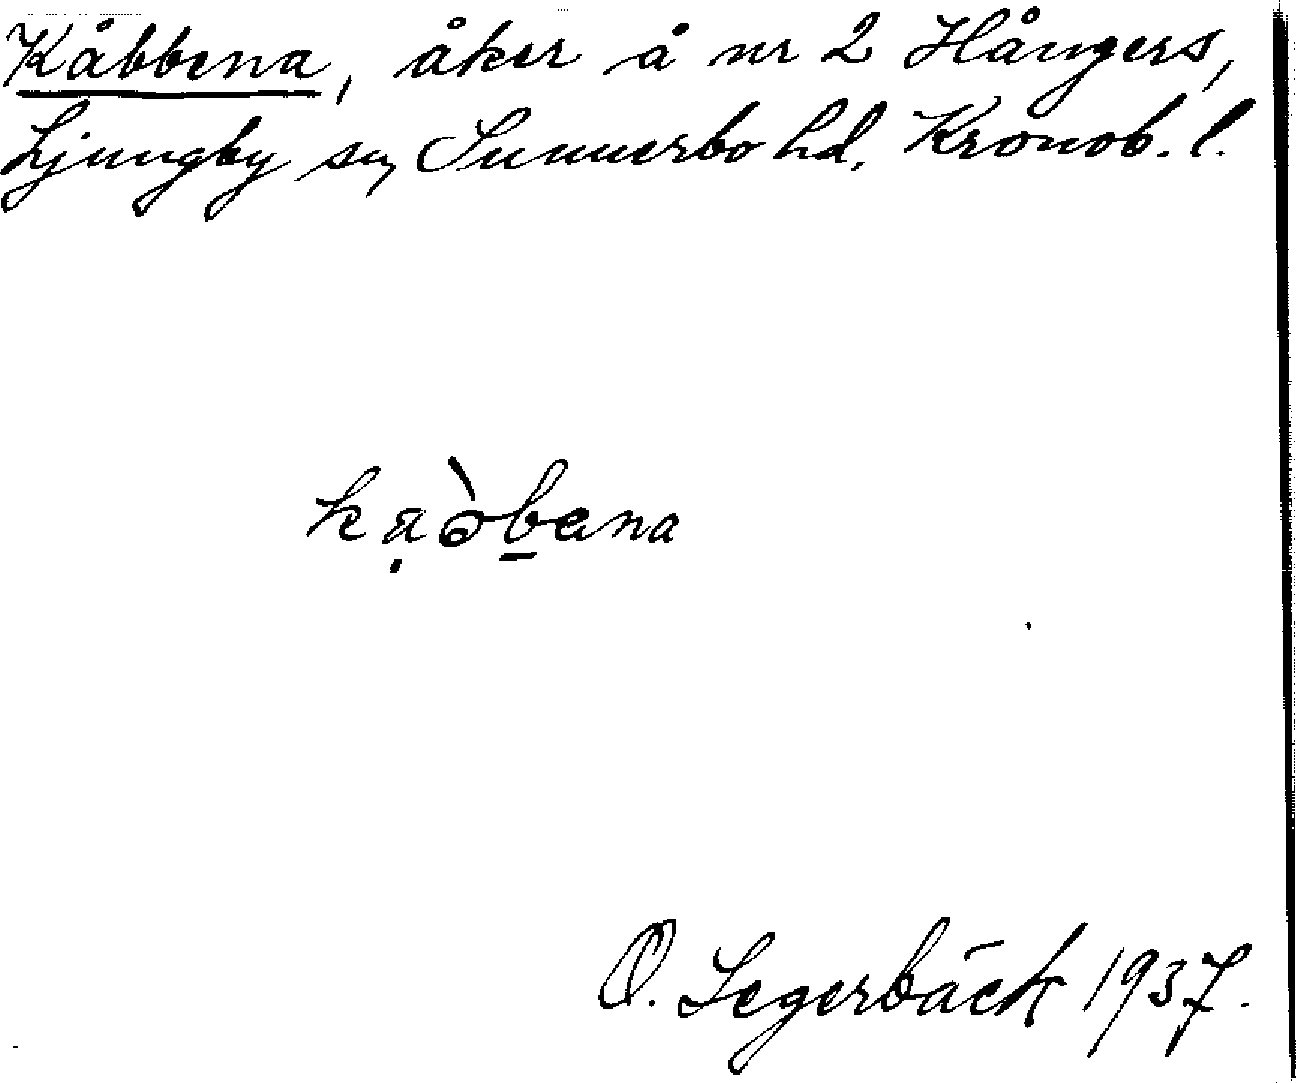 Kåbbena, åker å nr 2 Hångers,
Ljungby sn, Sunnerbo hd, Kronob. l.
O. Segerbäck 1937.